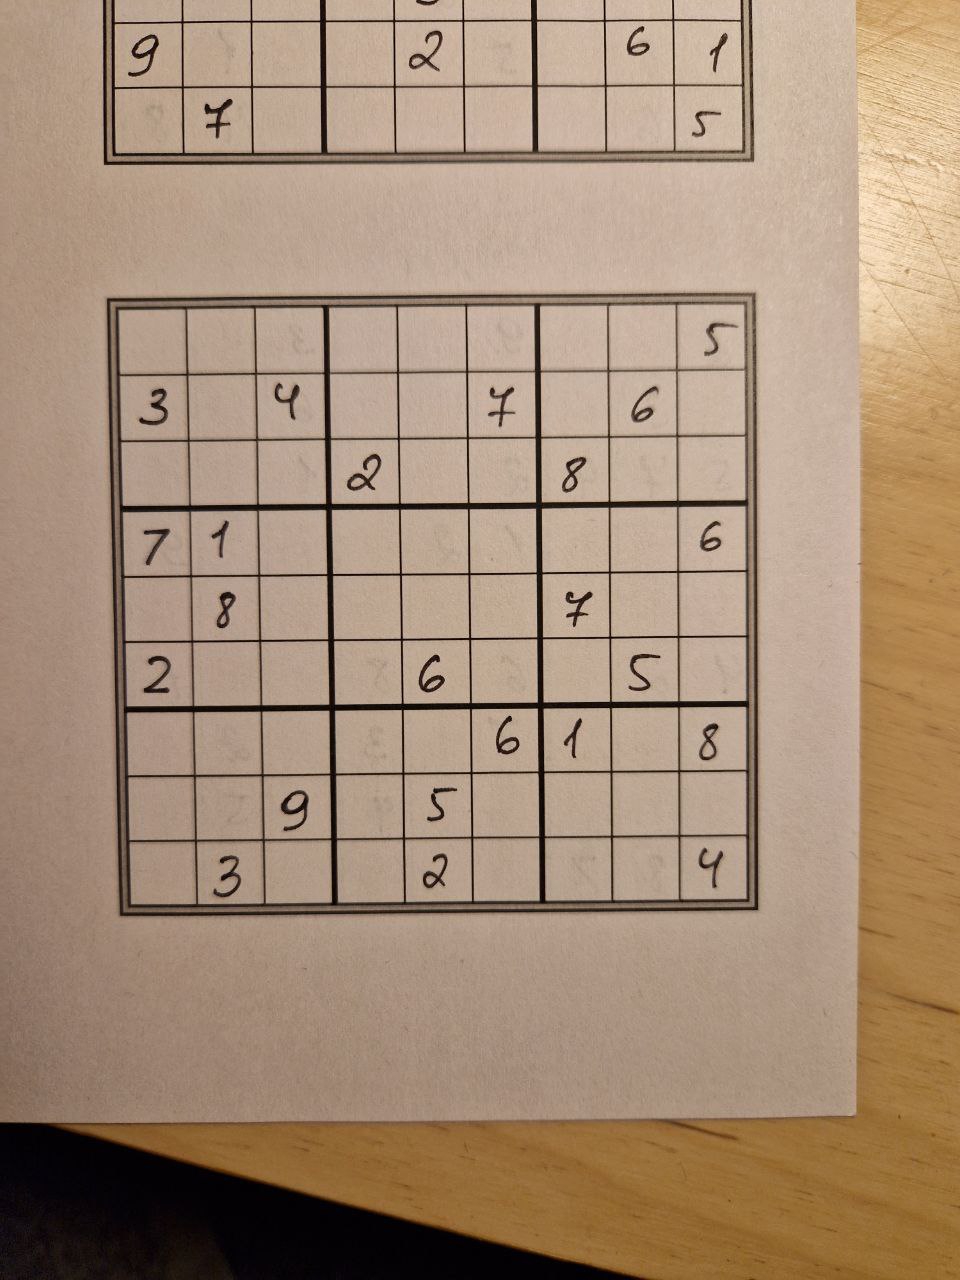 9 2 6 1
7 5
5
3 4 7 6
2 8
7 1 6
8 7
2 6 5
6 1 8
9 5
3 2 4